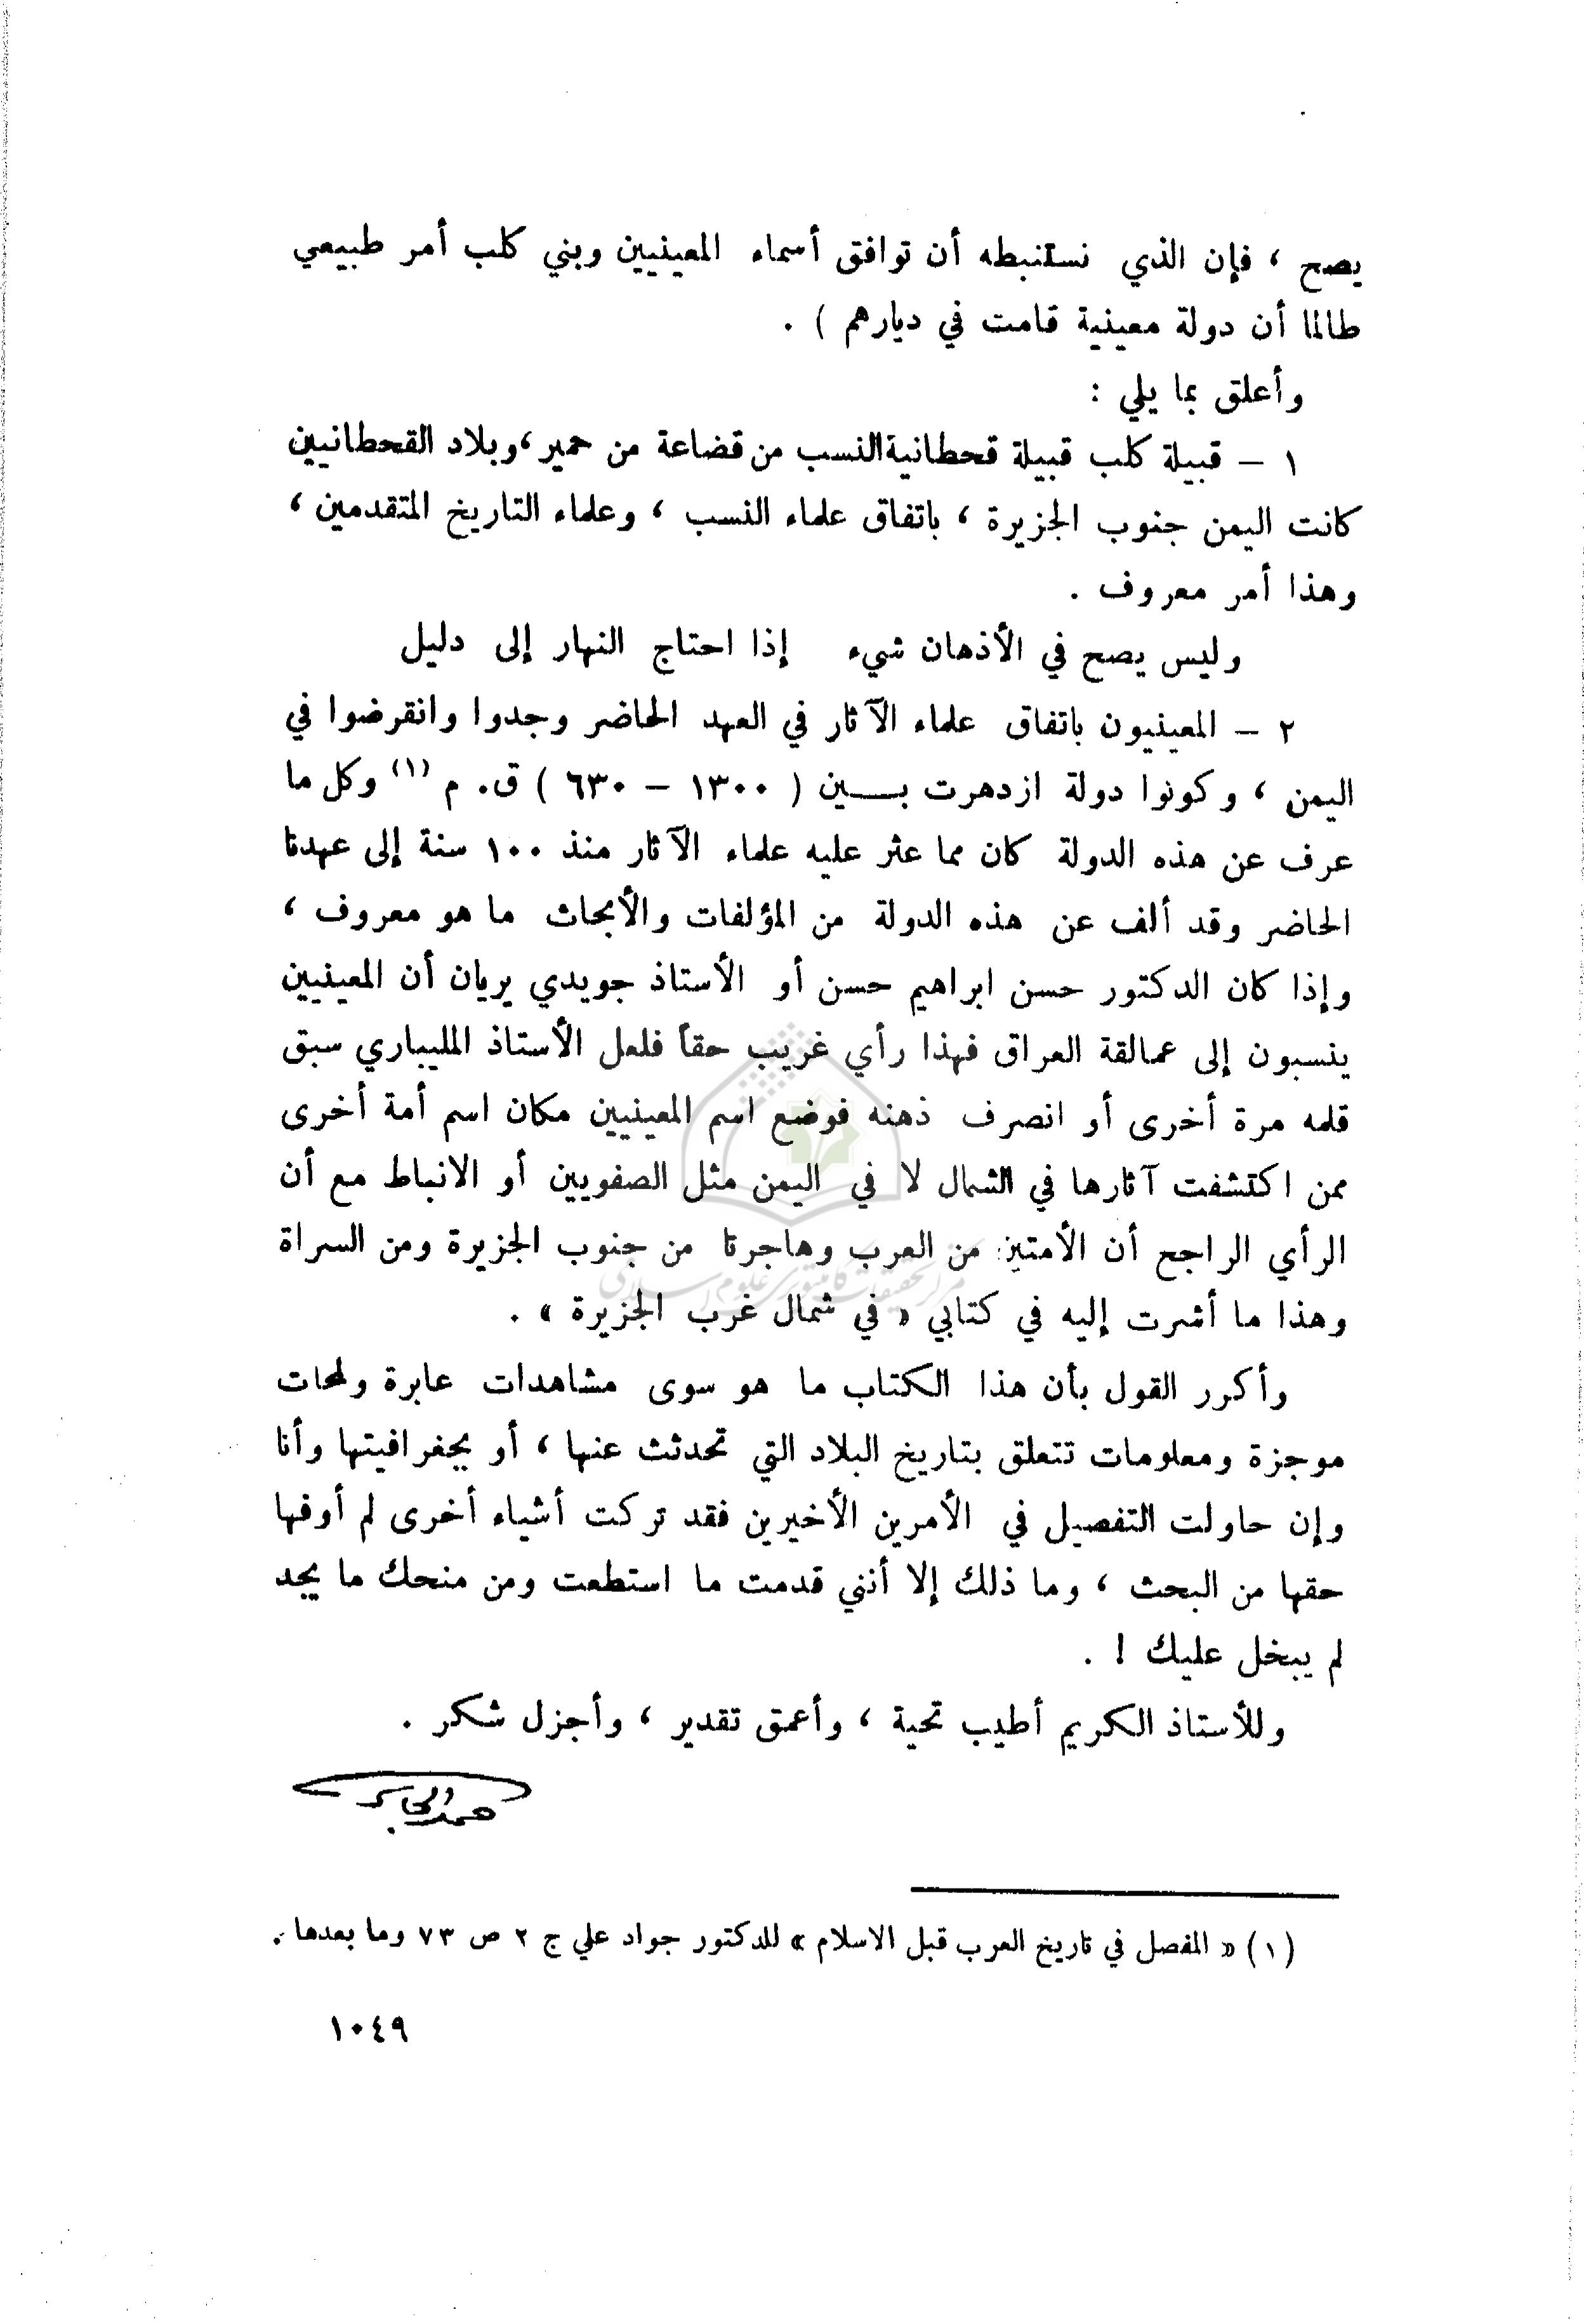 يصح ، فإن الذي نستنبطه أن توافق أسماء المعينيين وبني كلب أمر طبيعي
طالما أن دولة معينية قامت في ديارهم ) .
وأعلق بما يلي :
١ – قبيلة كلب قبيلة قحطانية النسب من قضاعة من حمير ، وبلاد القحطانيين
كانت اليمن جنوب الجزيرة ، باتفاق علماء النسب ، وعلماء التاريخ المتقدمين ،
وهذا أمر معروف .
وليس يصح في الأذهان شيء إذا احتاج النهار إلى دليل
٢ – المعينيون باتفاق علماء الآثار في العهد الحاضر وجدوا وانقرضوا في
اليمن ، وكونوا دولة ازدهرت بـــين ( ١٣٠٠ – ٦٣٠ ) ق. م (١) وكل ما
عرف عن هذه الدولة كان مما عثر عليه علماء الآثار منذ ١٠٠ سنة إلى عهدنا
الحاضر وقد ألف عن هذه الدولة من المؤلفات والأبحاث ما هو معروف ،
وإذا كان الدكتور حسن ابراهيم حسن أو الأستاذ جويدي يريان أن المعينيين
ينسبون إلى عمالقة العراق فهذا رأي غريب حقاً فلعل الأستاذ المليباري سبق
قلمه مرة أخرى أو انصرف ذهنه فوضع اسم المعينيين مكان اسم أمة أخرى
ممن اكتشفت آثارها في الشمال لا في اليمن مثل الصفويين أو الانباط مع أن
الرأي الراجح أن الأمتين من العرب وهاجرتا من جنوب الجزيرة ومن السراة
وهذا ما أشرت إليه في كتابي « في شمال غرب الجزيرة » .
وأكرر القول بأن هذا الكتاب ما هو سوى مشاهدات عابرة ولمحات
موجزة ومعلومات تتعلق بتاريخ البلاد التي تحدثت عنها ، أو بجغرافيتها وأنا
وإن حاولت التفصيل في الأمرين الأخيرين فقد تركت أشياء أخرى لم أوفها
حقها من البحث ، وما ذلك إلا أنني قدمت ما استطعت ومن منحك ما يجد
لم يبخل عليك ! .
وللأستاذ الكريم أطيب تحية ، وأعمق تقدير ، وأجزل شكر .
حمد الجاسر
(١) « المفصل في تاريخ العرب قبل الاسلام » للدكتور جواد علي ج ٢ ص ٧٣ وما بعدها .
١٠٤٩
مركز تحقيقات كامپيوتری علوم اسلامی